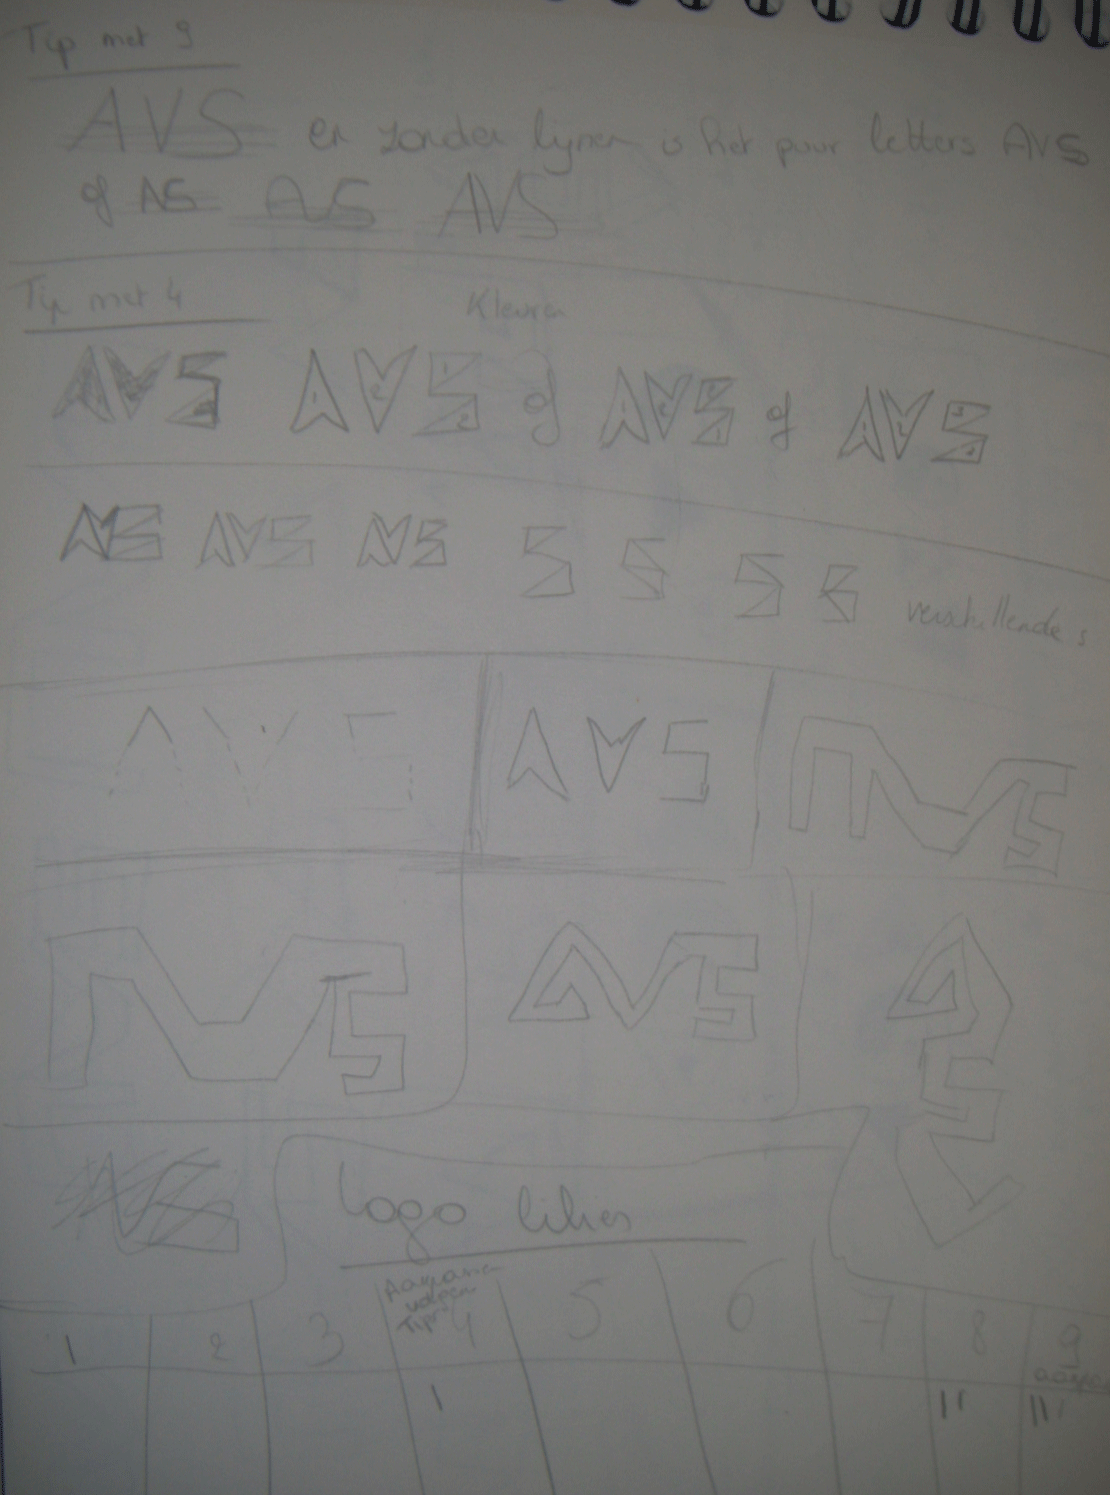 Tip met 9
AVS en zonder lijnen is het puur letters AVS
of AVS AVS AVS
Tip met 4 Kleuren
AVS AVS of AVS of AVS
AVS AVS AVS S S S S verschillende s
AVS AVS AVS
AVS AVS AVS
Logo likes
1 2 3 4 5 6 7 8 9
Tip
I II III